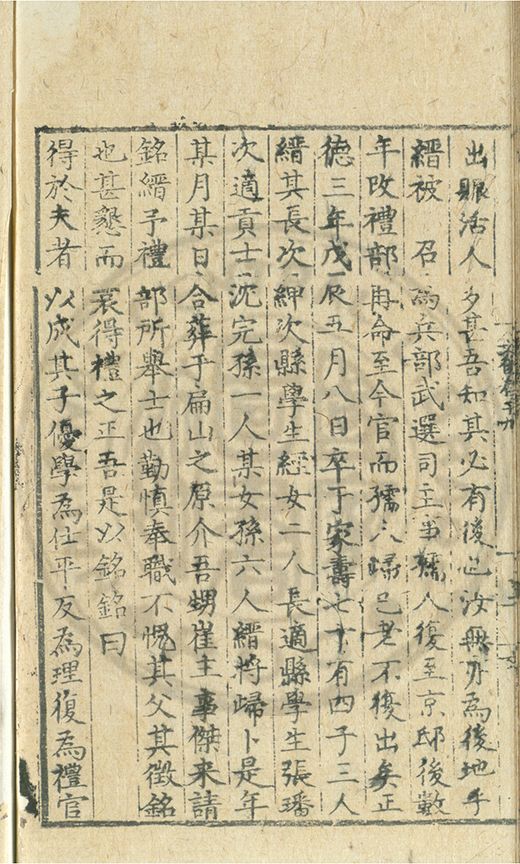 出賑活人多甚吾知其必有後也汝無乃為後地乎
縉被 召為兵部武選司主事孺人復至京邸後數
年改禮部再命至今官而孺人歸已老不復出矣正
德三年戊辰五月八日卒于家壽七十有四子三人
縉其長次紳次縣學生經女二人長適縣學生張璠
次適貢士沈完孫一人某女孫六人縉將歸卜是年
某月某日合葬于扁山之原介吾甥崔主事傑来請
銘縉予禮部所舉士也勤慎奉職不愧其父其徵銘
也甚懇而哀得禮之正吾是以銘銘曰
得於夫者以成其子優學為仕平反為理復為禮官